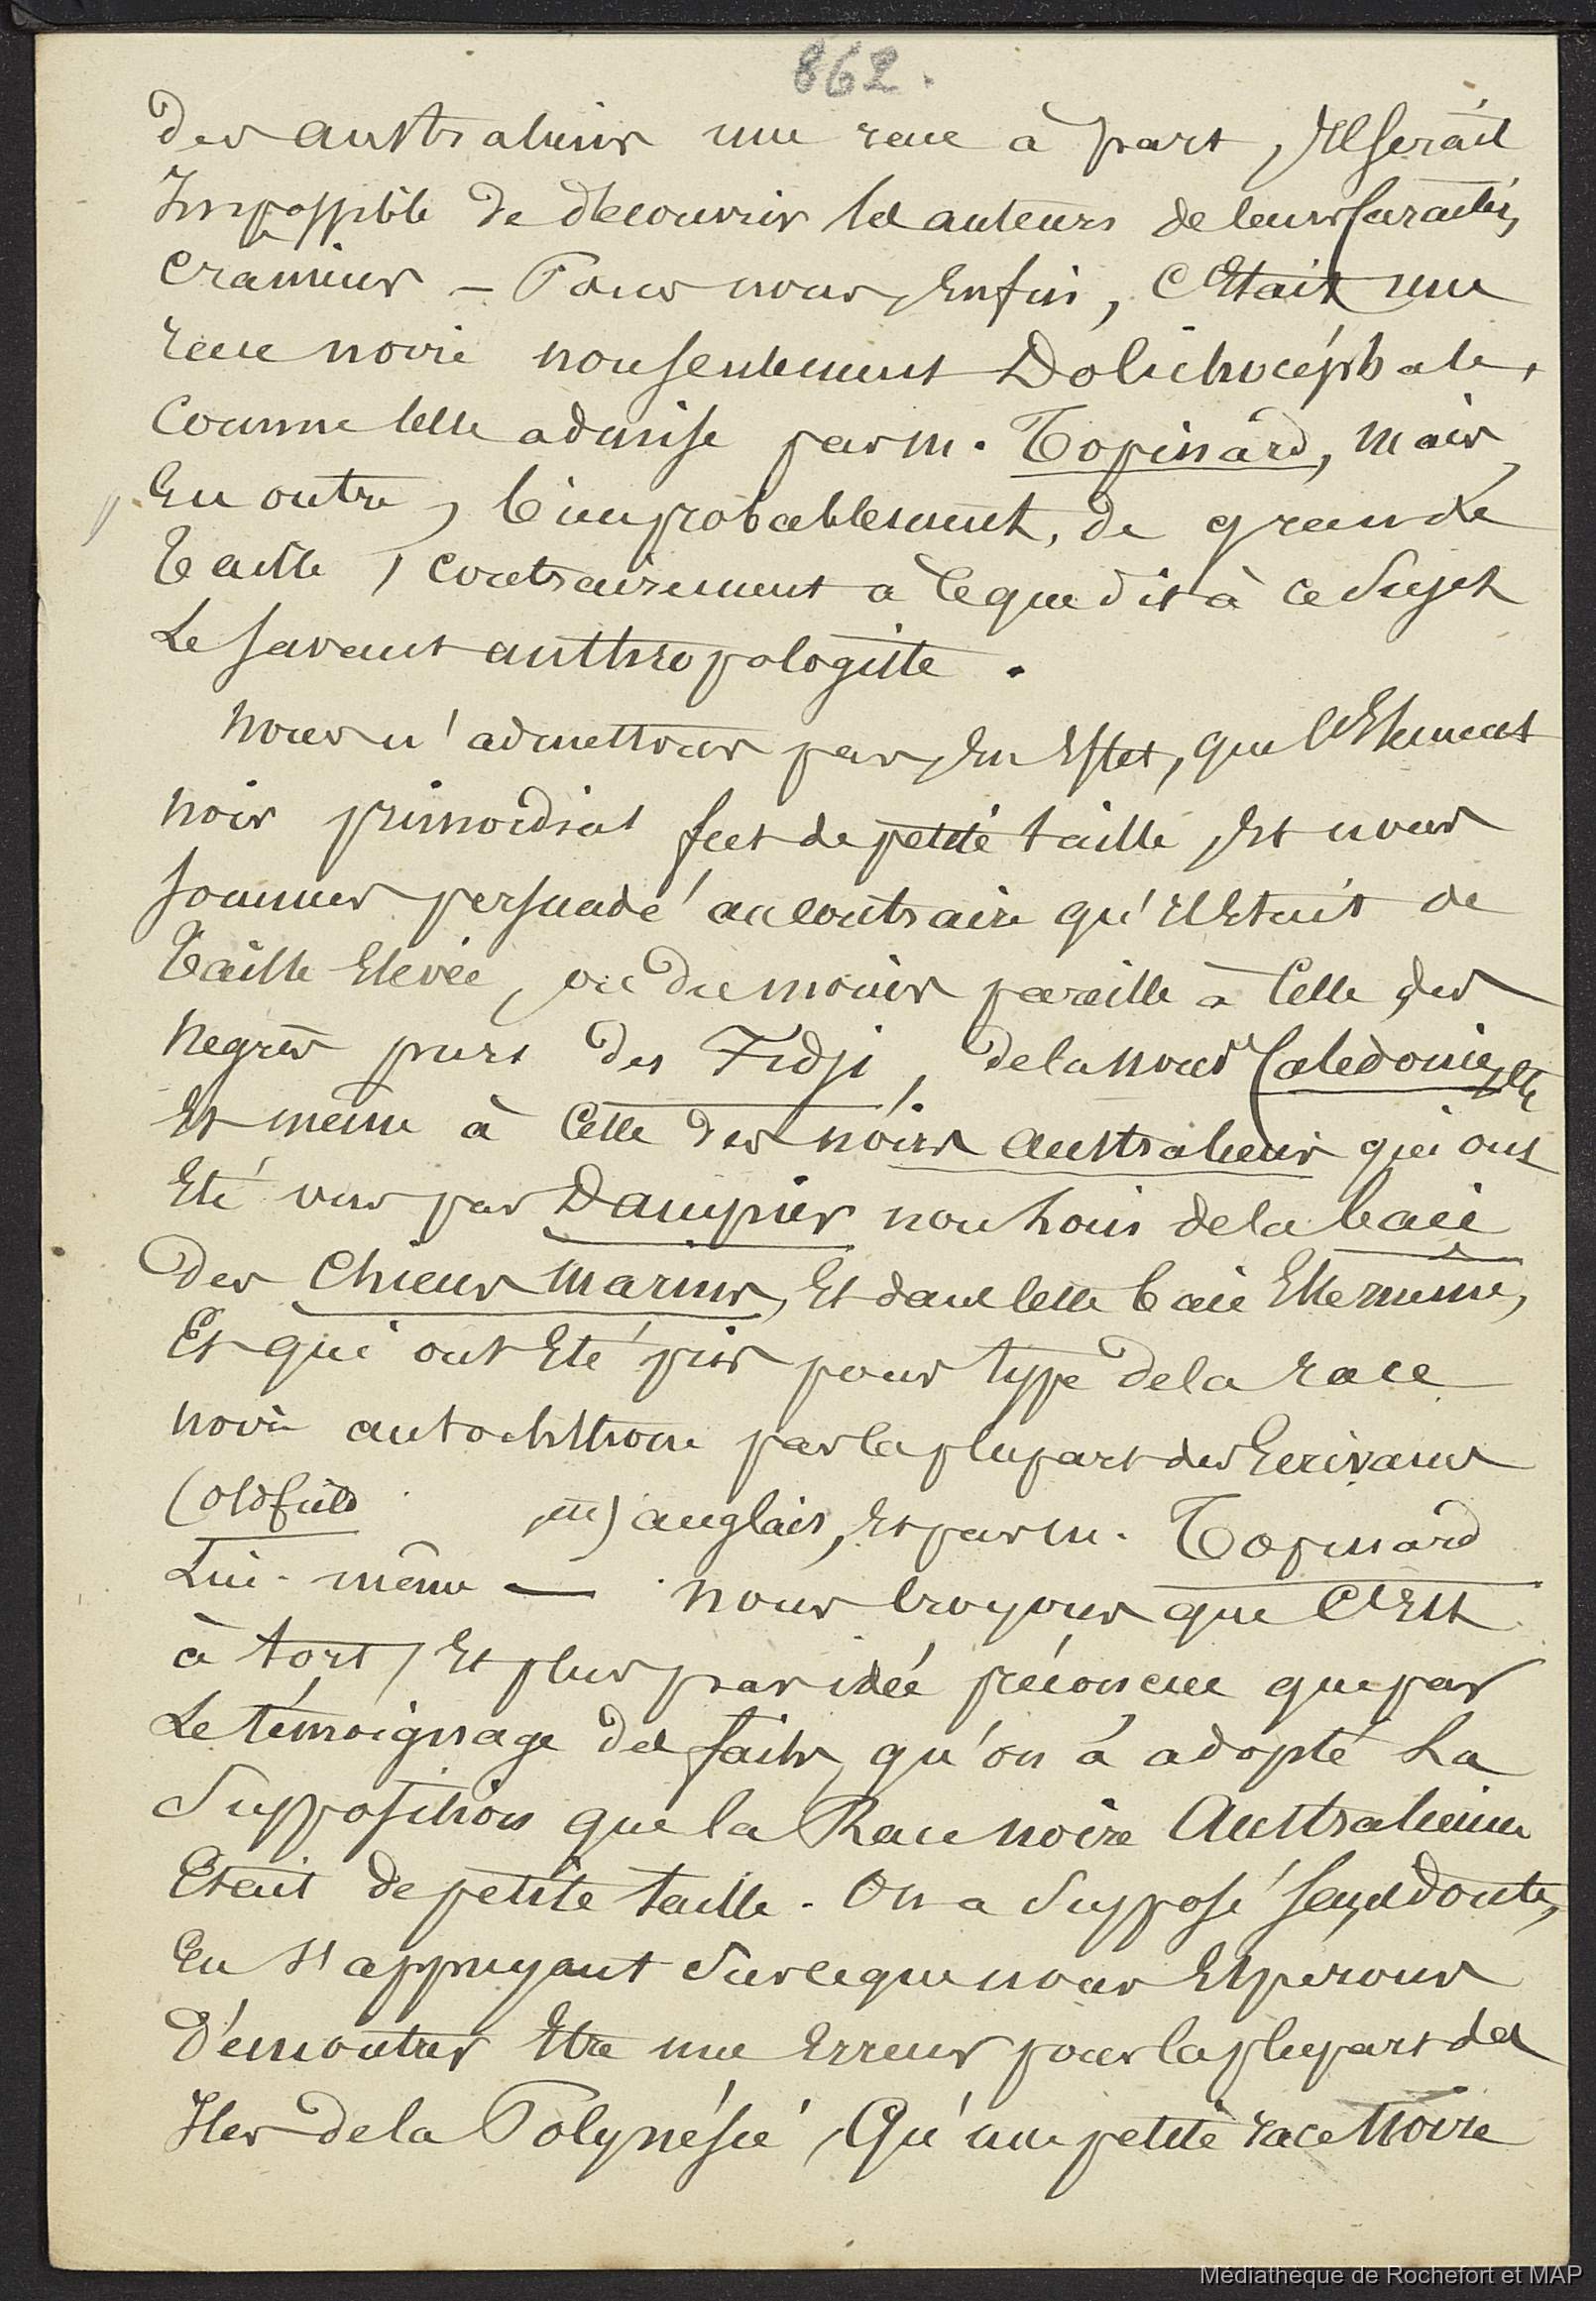 862.
des australiens une race à part, Il serait
Impossible de découvrir les auteurs de leurs caractères
craniens – Pour nous, Enfin, c'Etait une
race noire non seulement Dolichocéphale,
comme celle admise par M. Topinard, mais,
En outre, bien probablement, de grande
taille, contrairement à ce que dit à ce sujet
Le savant anthropologiste.
Nous n'admettons pas, En Effet, que l'Element
noir primordial fut de petite taille, Et nous
sommes persuadé au contraire qu'Il Etait de
taille Elevée, ou du moins pareille à celle des
Negres purs des Fidji, de la Nouv Calédonie, etc
Et même à celle des noirs australiens qui ont
Eté vus par Dampier non loin de la baie
des Chiens Marins, Et dans cette baie Elle même,
Et qui ont Eté pris pour type de la race
noire autochthone par la plupart des Ecrivains
(Oldfield etc) anglais, Et par M. Topinard
Lui-même — Nous croyons que c'Est
à tort, Et plus par idée préconcue que par
Le témoignage des faits, qu'on a adopté La
Supposition que la Race noire Australienne
Etait de petite taille. On a Supposé sans doute,
En s'appuyant Sur ce que nous Esperons
Démontrer Etre une Erreur pour la plupart des
Iles de la Polynésie, Qu'une petite race Noire
Médiathèque de Rochefort et MAP